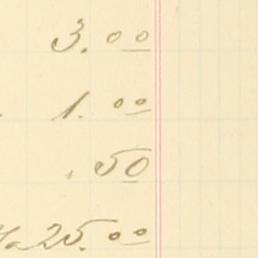 3.00
1.00
.50
25.00